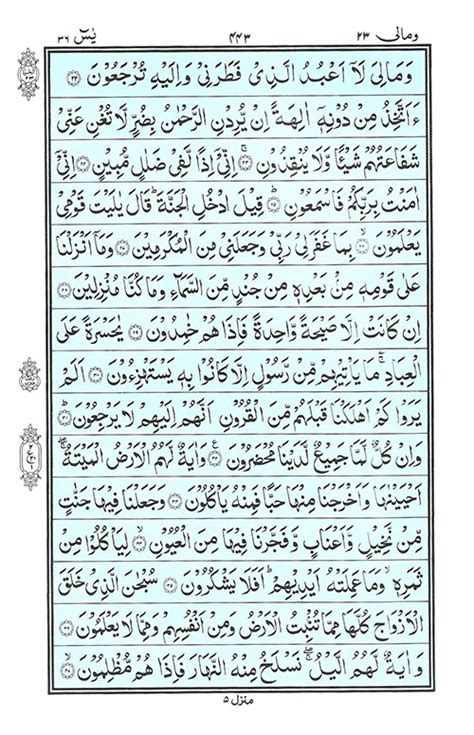 ومالی ۲۳ ۴۴۳ یٰسٓ ۳۶
وَمَا لِىَ لَاۤ اَعۡبُدُ الَّذِىۡ فَطَرَنِىۡ وَاِلَيۡهِ تُرۡجَعُوۡنَ ۝۲۲
ءَاَتَّخِذُ مِنۡ دُوۡنِهٖۤ اٰلِهَةً اِنۡ يُّرِدۡنِ الرَّحۡمٰنُ بِضُرٍّ لَّا تُغۡنِ عَنِّىۡ
شَفَاعَتُهُمۡ شَيۡـًٔا وَّلَا يُنۡقِذُوۡنِ‌ۚ ۝۲۳ اِنِّىۡۤ اِذًا لَّفِىۡ ضَلٰلٍ مُّبِيۡنٍ ۝۲۴ اِنِّىۡۤ
اٰمَنۡتُ بِرَبِّكُمۡ فَاسۡمَعُوۡنِؕ ۝۲۵ قِيۡلَ ادۡخُلِ الۡجَـنَّةَ ؕ قَالَ يٰلَيۡتَ قَوۡمِىۡ
يَعۡلَمُوۡنَۙ ۝۲۶ بِمَا غَفَرَلِىۡ رَبِّىۡ وَجَعَلَنِىۡ مِنَ الۡمُكۡرَمِيۡنَ ۝۲۷ وَمَاۤ اَنۡزَلۡنَا
عَلٰى قَوۡمِهٖ مِنۡۢ بَعۡدِهٖ مِنۡ جُنۡدٍ مِّنَ السَّمَآءِ وَمَا كُنَّا مُنۡزِلِيۡنَ ۝۲۸
اِنۡ كَانَتۡ اِلَّا صَيۡحَةً وَّاحِدَةً فَاِذَا هُمۡ خٰمِدُوۡنَ ۝۲۹ يٰحَسۡرَةً عَلَى
الۡعِبَادِ ؔۚ مَا يَاۡتِيۡهِمۡ مِّنۡ رَّسُوۡلٍ اِلَّا كَانُوۡا بِهٖ يَسۡتَهۡزِءُوۡنَ ۝۳۰ اَلَمۡ
يَرَوۡا كَمۡ اَهۡلَكۡنَا قَبۡلَهُمۡ مِّنَ الۡقُرُوۡنِ اَنَّهُمۡ اِلَيۡهِمۡ لَا يَرۡجِعُوۡنَؕ ۝۳۱
وَاِنۡ كُلٌّ لَّمَّا جَمِيۡعٌ لَّدَيۡنَا مُحۡضَرُوۡنَ ۝۳۲ وَاٰيَةٌ لَّهُمُ الۡاَرۡضُ الۡمَيۡتَةُ ۖۚ
اَحۡيَيۡنٰهَا وَاَخۡرَجۡنَا مِنۡهَا حَبًّا فَمِنۡهُ يَاۡكُلُوۡنَ ۝۳۳ وَجَعَلۡنَا فِيۡهَا جَنّٰتٍ
مِّنۡ نَّخِيۡلٍ وَّاَعۡنَابٍ وَّفَجَّرۡنَا فِيۡهَا مِنَ الۡعُيُوۡنِۙ ۝۳۴ لِيَاۡكُلُوۡا مِنۡ
ثَمَرِهٖ ۙ وَمَا عَمِلَتۡهُ اَيۡدِيۡهِمۡ ؕ اَفَلَا يَشۡكُرُوۡنَ ۝۳۵ سُبۡحٰنَ الَّذِىۡ خَلَقَ
الۡاَزۡوَاجَ كُلَّهَا مِمَّا تُنۡۢبِتُ الۡاَرۡضُ وَمِنۡ اَنۡفُسِهِمۡ وَمِمَّا لَا يَعۡلَمُوۡنَ ۝۳۶
وَاٰيَةٌ لَّهُمُ الَّيۡلُ ۖۚ نَسۡلَخُ مِنۡهُ النَّهَارَ فَاِذَا هُمۡ مُّظۡلِمُوۡنَۙ ۝۳۷
منزل ۵